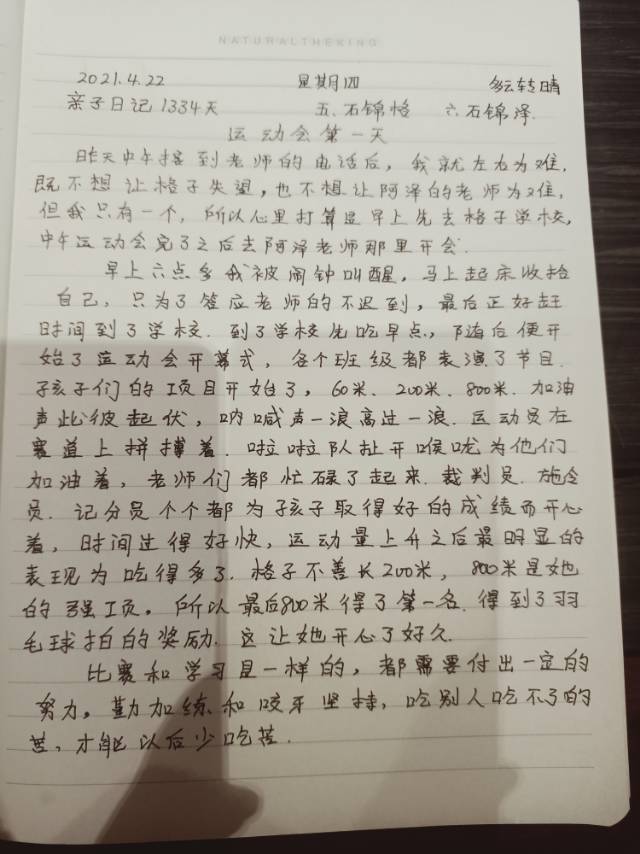 NATURALTHEKING
2021.4.22 星期四 多云转晴
亲子日记1334天 五.石锦恪 六石锦泽.
运动会第一天
昨天中午接到老师的电话后，我就左右为难，
既不想让格子失望，也不想让阿泽的老师为难，
但我只有一个，所以心里打算是早上先去格子学校，
中午运动会完了之后去阿泽老师那里开会.
早上六点多我被闹钟叫醒，马上起床收拾
自己，只为了答应老师的不迟到，最后正好赶
时间到了学校.到了学校先吃早点，随后便开
始了运动会开幕式，各个班级都表演了节目.
孩子们的项目开始了，60米.200米.800米.加油
声此彼起伏，呐喊声一浪高过一浪.运动员在
赛道上拼搏着.啦啦队扯开喉咙为他们
加油着，老师们都忙碌了起来.裁判员.施令
员.记分员个个都为孩子取得好的成绩而开心
着，时间过得好快，运动量上升之后最明显的
表现为吃得多了.格子不善长200米，800米是她
的强项。所以最后800米得了第一名.得到了羽
毛球拍的奖励.这让她开心了好久.
比赛和学习是一样的，都需要付出一定的
努力，勤加练和咬牙坚持，吃别人吃不了的
苦，才能以后少吃苦.